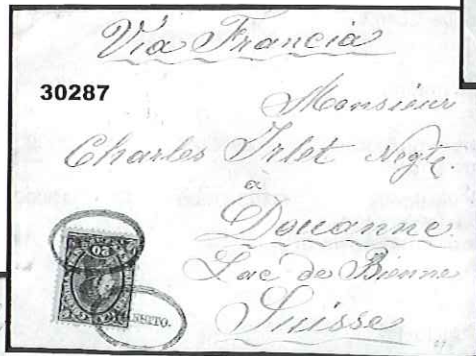 Via Francia
30287
Monsieur
Charles Irlet Negte.
à
Douanne
Lac de Bienne
Suisse
20